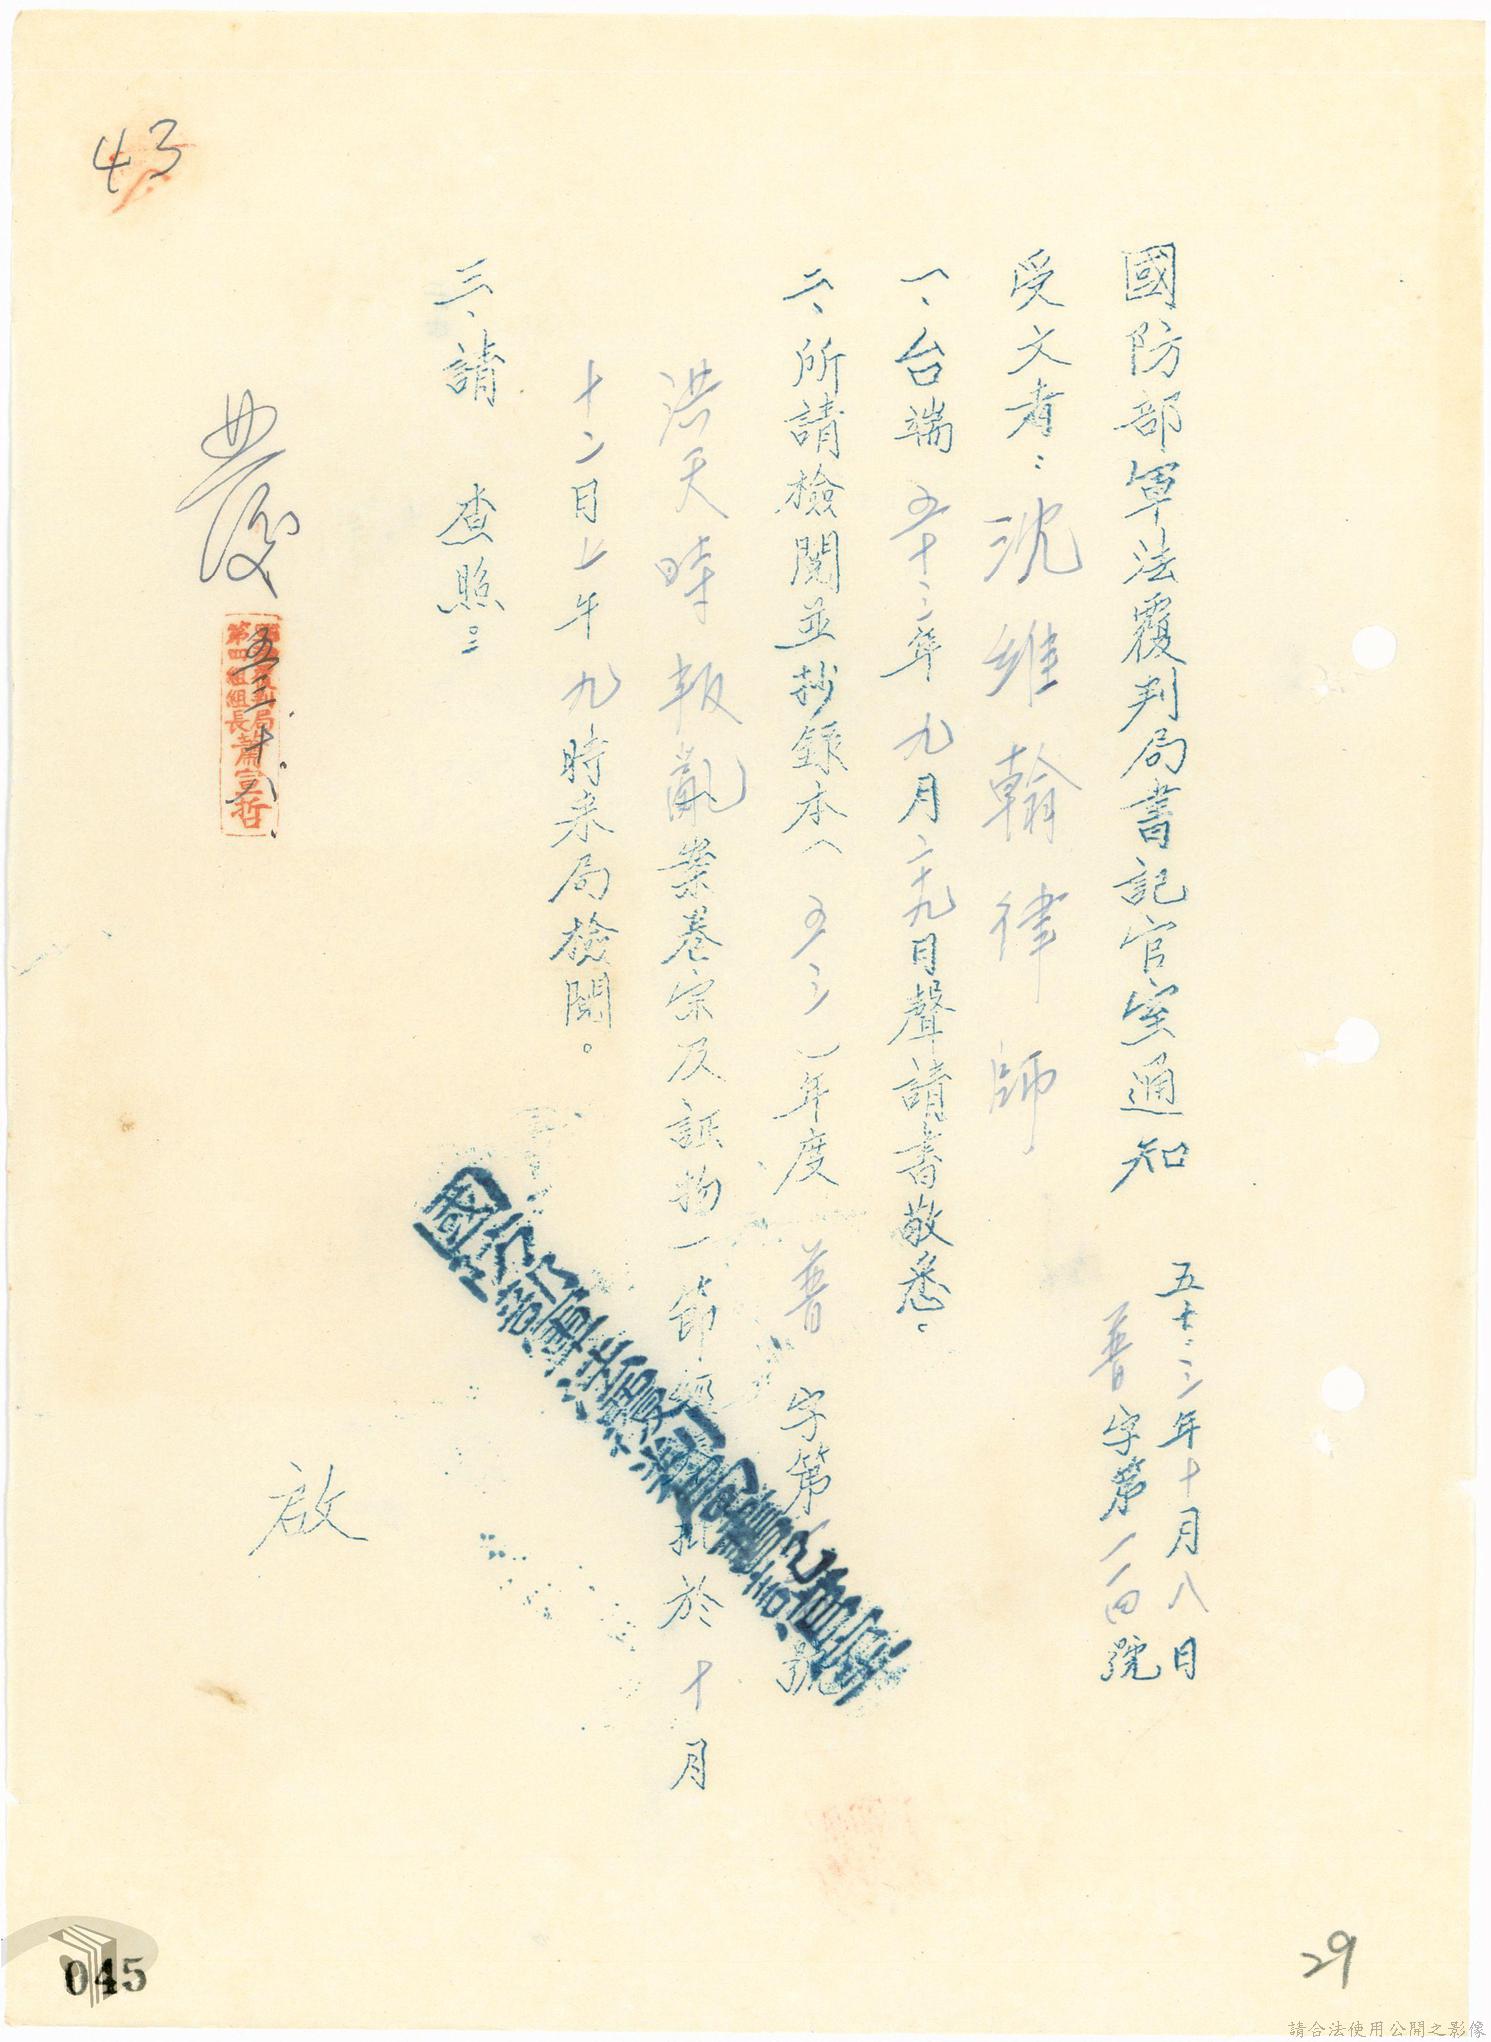 國防部軍法覆判局書記官室通知
五十三年十月八日
普字第一一四號
受文者：沈維翰律師
一、台端五十三年九月二十九日聲請書敬悉。
二、所請檢閱並抄錄本(五三)年度普字第 號
洪天時叛亂案卷宗及証物一節經 批於十月
十二日上午九時來局檢閱。
三、請 查照。
國防部軍法覆判局書記官室
啟
發
第四組組長蕭宣哲
五三、十、八、
43
29
045
請合法使用公開之影像